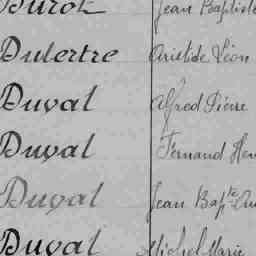 Jean Baptiste
Dutertre Aristide Léon
Duval Alfred Pierre
Duval Fernand
Duval Jean Bapte
Duval Michel Marie